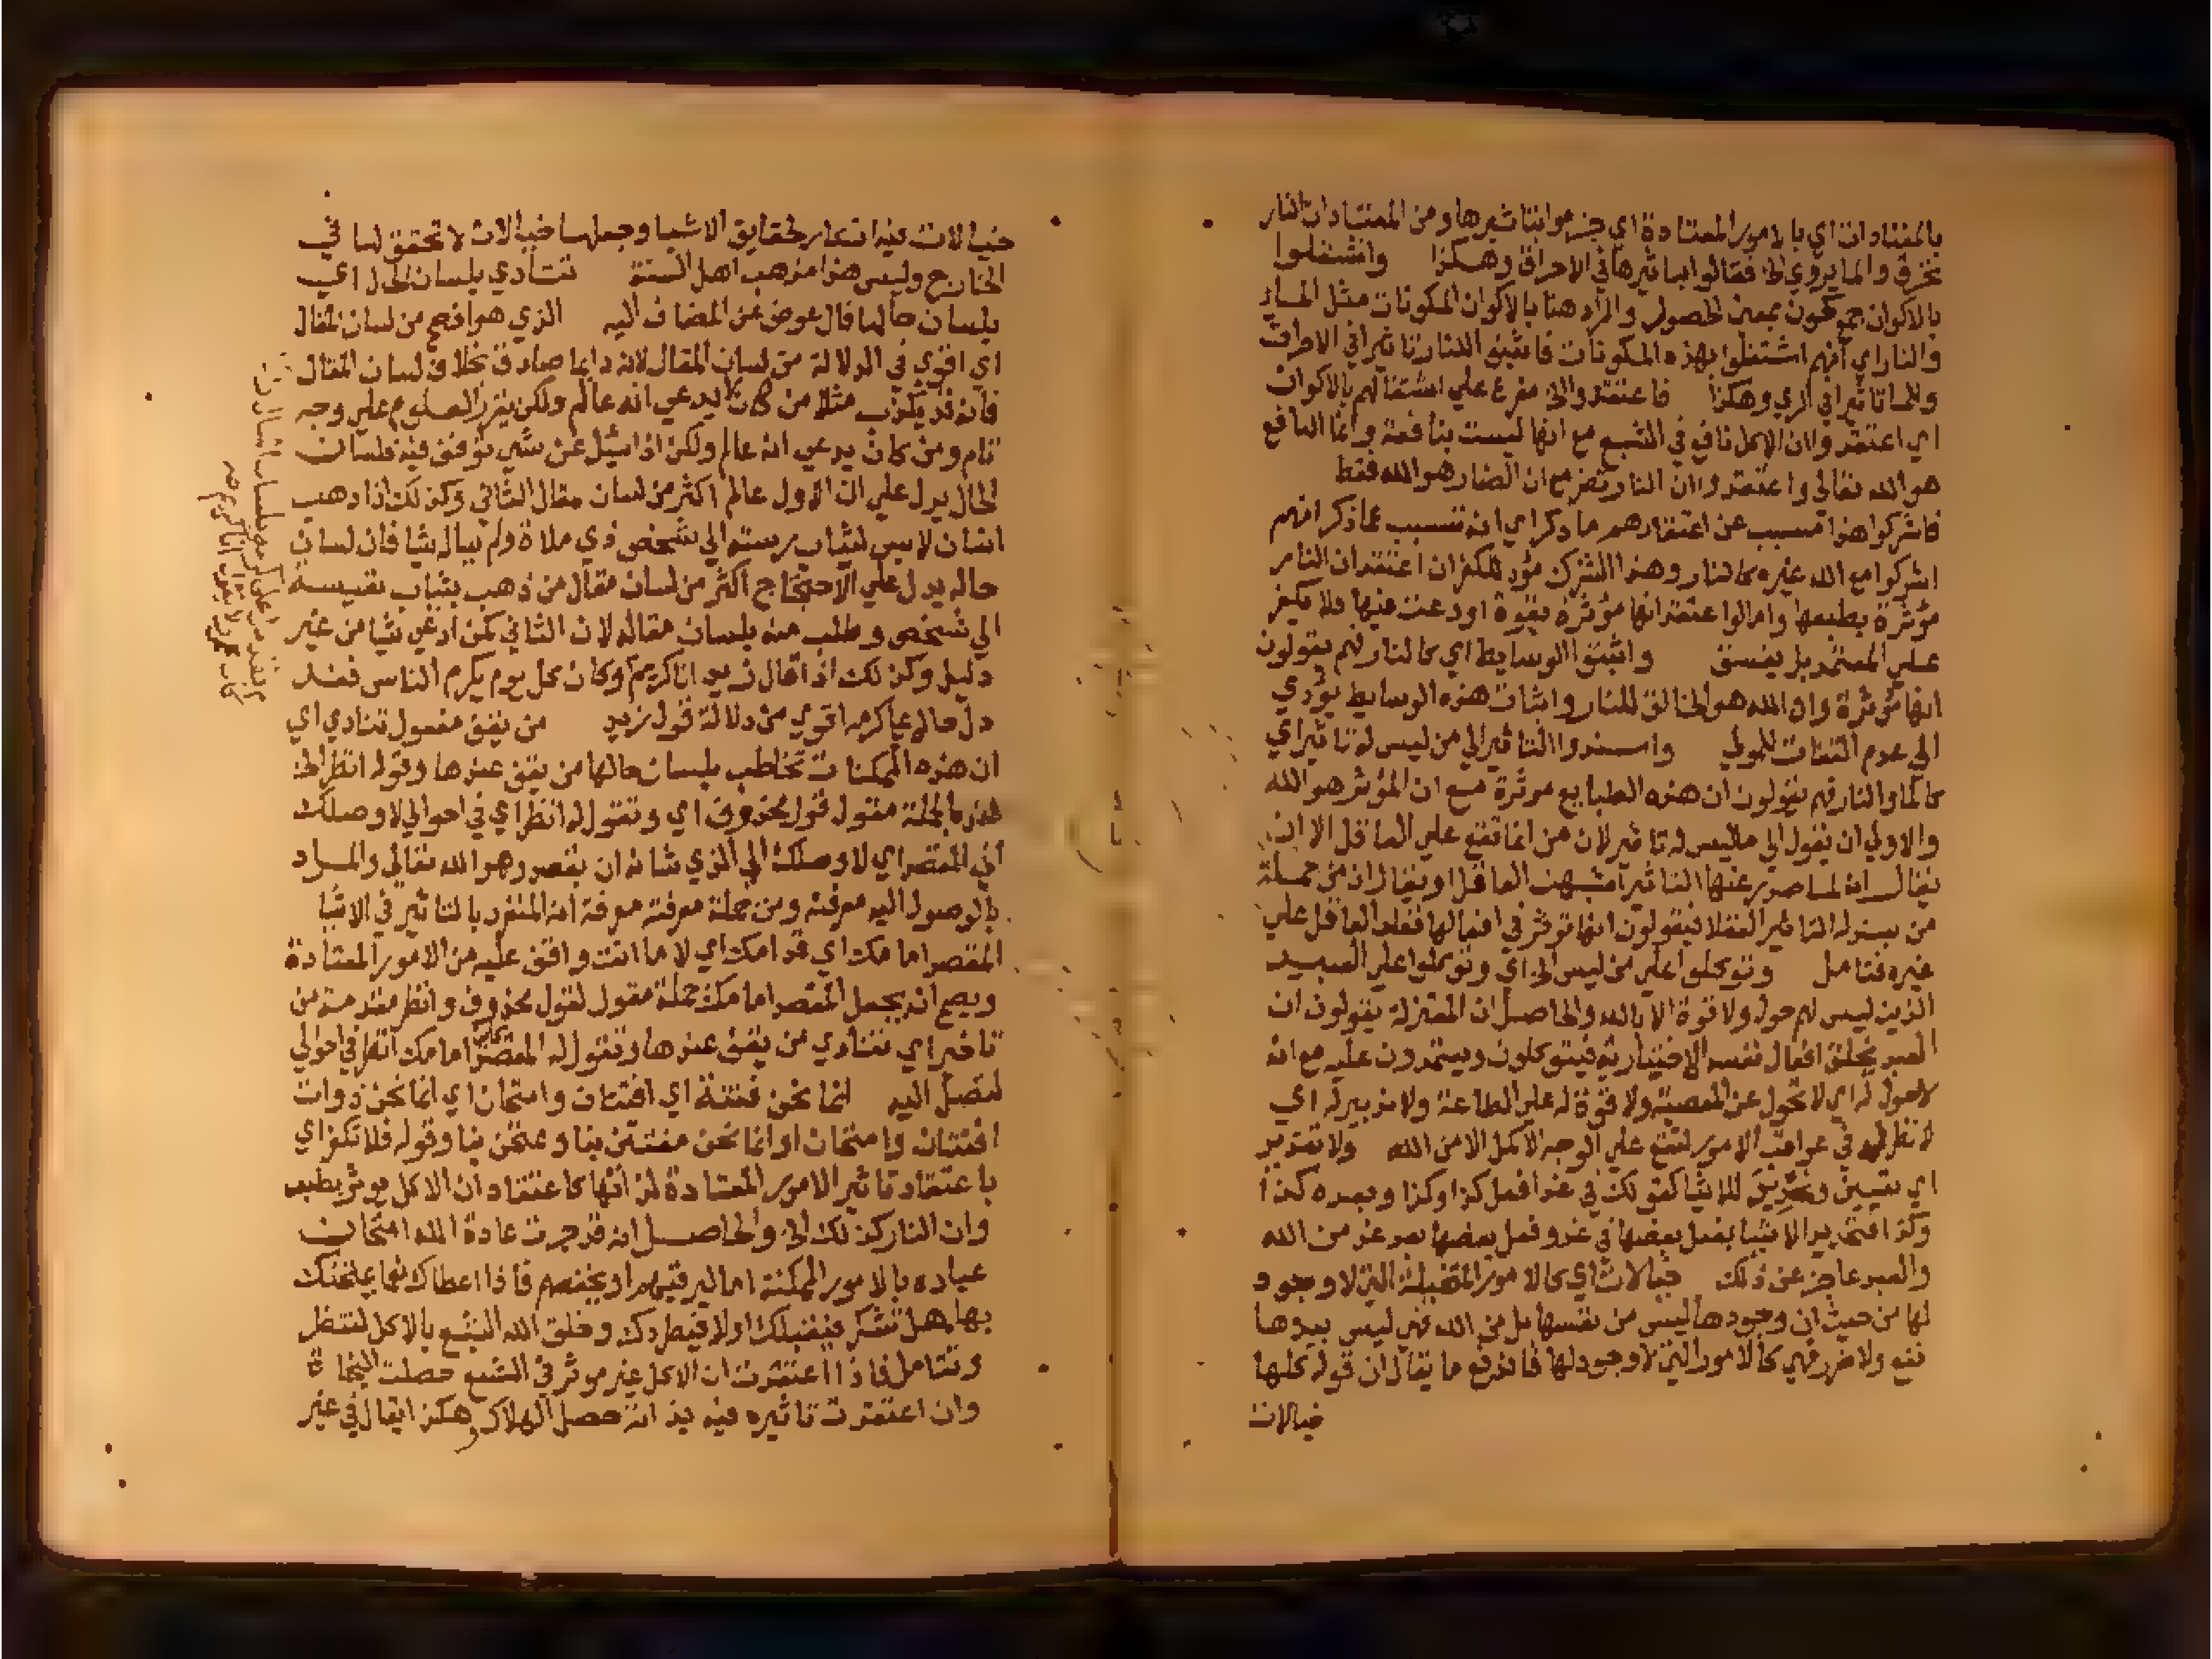 بالمعتادات اي بالامور المعتادة اي جزموا بتاثيرها ومن المعتادات النار
تحرق والما يروي الخ فقالوا بتاثيرها في الاحراق وهكذا وانشغلوا
بالاكوان جمع كون بمعني الحصول والمراد هنا بالاكوان المكونات مثل الما
والنار اي انهم اشتغلوا بهذه المكونات فاثبتوا للنار تاثيرا في الاحراق
وللما تاثيرا في الري وهكذا فاعتقدوا الخ مفرع علي اشتغالهم بالاكوان
اي اعتقدوا ان الاكل نافع في الشبع مع انها ليست بنافعة وانما النافع
هو الله تعالي واعتقدوا ان النار تضر مع ان الضار هو الله فقط
فاشركوا هذا تسبب عن اعتقادهم ما ذكر اي انه تسبب عما ذكر انهم
اشركوا مع الله غيره كالنار وهذا الشرك مؤد للكفر ان اعتقد ان النار
مؤثرة بطبعها وامالوا اعتقد انها مؤثرة بقوة اودعت فيها فلا يكفر
علي المعتمد بل يفسق واثبتوا الوسايط اي كالنار فهم يقولون
انها مؤثرة وان الله هو الخالق للنار واثبات هذه الوسايط يؤدي
الي عدم التفات للمولي واسندوا التاثير الي من ليس له تاثير اي
كالما والنار فهم يقولون ان هذه الطبايع موثرة مع ان المؤثر هو الله
والاولي ان يقول الي ما ليس له تاثير لان من انما تقع علي العاقل الا ان
يقال انه لما صدر عنها التاثير اشبهت العاقل او يقال ان من جملة
من يسند له التاثير العقلا فيقولون انها توثر في افعالها فغلب العاقل علي
غيره فتامل وتوكلوا علي من ليس الخ اي وتوكلوا علي العبيد
الذين ليس لهم حول ولا قوة الا بالله والحاصل ان المعتزلة يقولون ان
العبد يخلق افعال نفسه الاختيارية فيتوكلون ويعتمدون عليه مع انه
لا حول له اي لا تحول عن المعصية ولا قوة له علي الطاعة ولا تدبير له اي
لا نظر له في عواقب الامور لتقع علي الوجه الاكمل الا من الله ولا تقدير
اي تعيين للاشيا كقولك في غد افعل كذا وكذا وبعده كذا
وكذا فتقدير الاشيا بفعل بعضها في غد وفعل بعضها بعد غد من الله
والعبد عاجز عن ذلك خيالات اي كالامور المتخيلة التي لا وجود
لها من حيث ان وجودها ليس من نفسها بل من الله فهي ليس بيدها
نفع ولا ضرر فهي كالامور التي لا وجود لها فاندفع ما يقال ان قوله كلها
خيالات
خيالات فيه انكار لحقايق الاشيا وجعلها خيالات لا تحقق لها في
الخارج وليس هذا مذهب اهل السنة تنادي بلسان الحال اي
بلسان حالها فال عوض عن المضاف اليه الذي هو افصح من لسان المقال
اي اقوي في الدلالة من لسان المقال لانه دايما صادق بخلاف لسان المقال
فانه قد يكذب مثلا من كان لا يدعي انه عالم ولكن يقرر العلوم علي وجه
تام ومن كان يدعي انه عالم ولكن اذا سئل عن شي توقف فيه فلسان
الحال يدل علي ان الاول عالم اكثر من لسان مقال الثاني وكذلك اذا ذهب
انسان لابس لثياب رستة الي شخص ذي ملاة ولم يساله شيا فان لسان
حاله يدل علي الاحتياج اكثر من لسان مقال من ذهب بثياب نفيسة
الي شخص وطلب منه بلسان مقاله لان الثاني كمن ادعي شيا من غير
دليل وكذلك اذا قال زيد انا كريم وكان كل يوم يكرم الناس فقد
دل حاله علي كرمه اقوي من دلالة قول زيد من يقف مفعول تنادي اي
ان هذه الممكنات تخاطب بلسان حالها من يقف عندها وقوله انظر الخ
هذه الجملة مقول قول محذوف اي وتقول له انظر اي في احوالي لاوصلك
الي المقصد اي لاوصلك الي الذي شانه ان يقصد وهو الله تعالي والمراد
بالوصول اليه معرفته ومن جملة معرفته معرفة انه المنفرد بالتاثير في الاشيا
المقصد امامك اي قدامك اي لا ما انت واقف عليه من الامور المعتادة
ويصح ان يجعل المقصد امامك جملة مقول لقول محذوف وانظر مقدمة من
تاخير اي تنادي من يقف عندها وتقول له المقصد امامك انظر في احوالي
لتصل اليه انما نحن فتنة اي افتتان وامتحان اي انما نحن ذوات
افتتان وامتحان او انما نحن مفتتن بنا وممتحن بنا وقوله فلا تكفر اي
باعتقاد تاثير الامور المعتادة لذاتها كاعتقاد ان الاكل يوثر بطبعه
وان النار كذلك الخ والحاصل انه قد جرت عادة الله امتحان
عباده بالامور الممكنة اما ليرقيهم او يخفضهم فاذا اعطاك نعما يمتحنك
بها هل تشكر فيقبلك او لا فيطردك وخلق الله الشبع بالاكل لتنظر
وتتامل فاذا اعتقدت ان الاكل غير موثر في الشبع حصلت النجاة
وان اعتقدت تاثيره فيه بذاته حصل الهلاك وهكذا يقال في غير